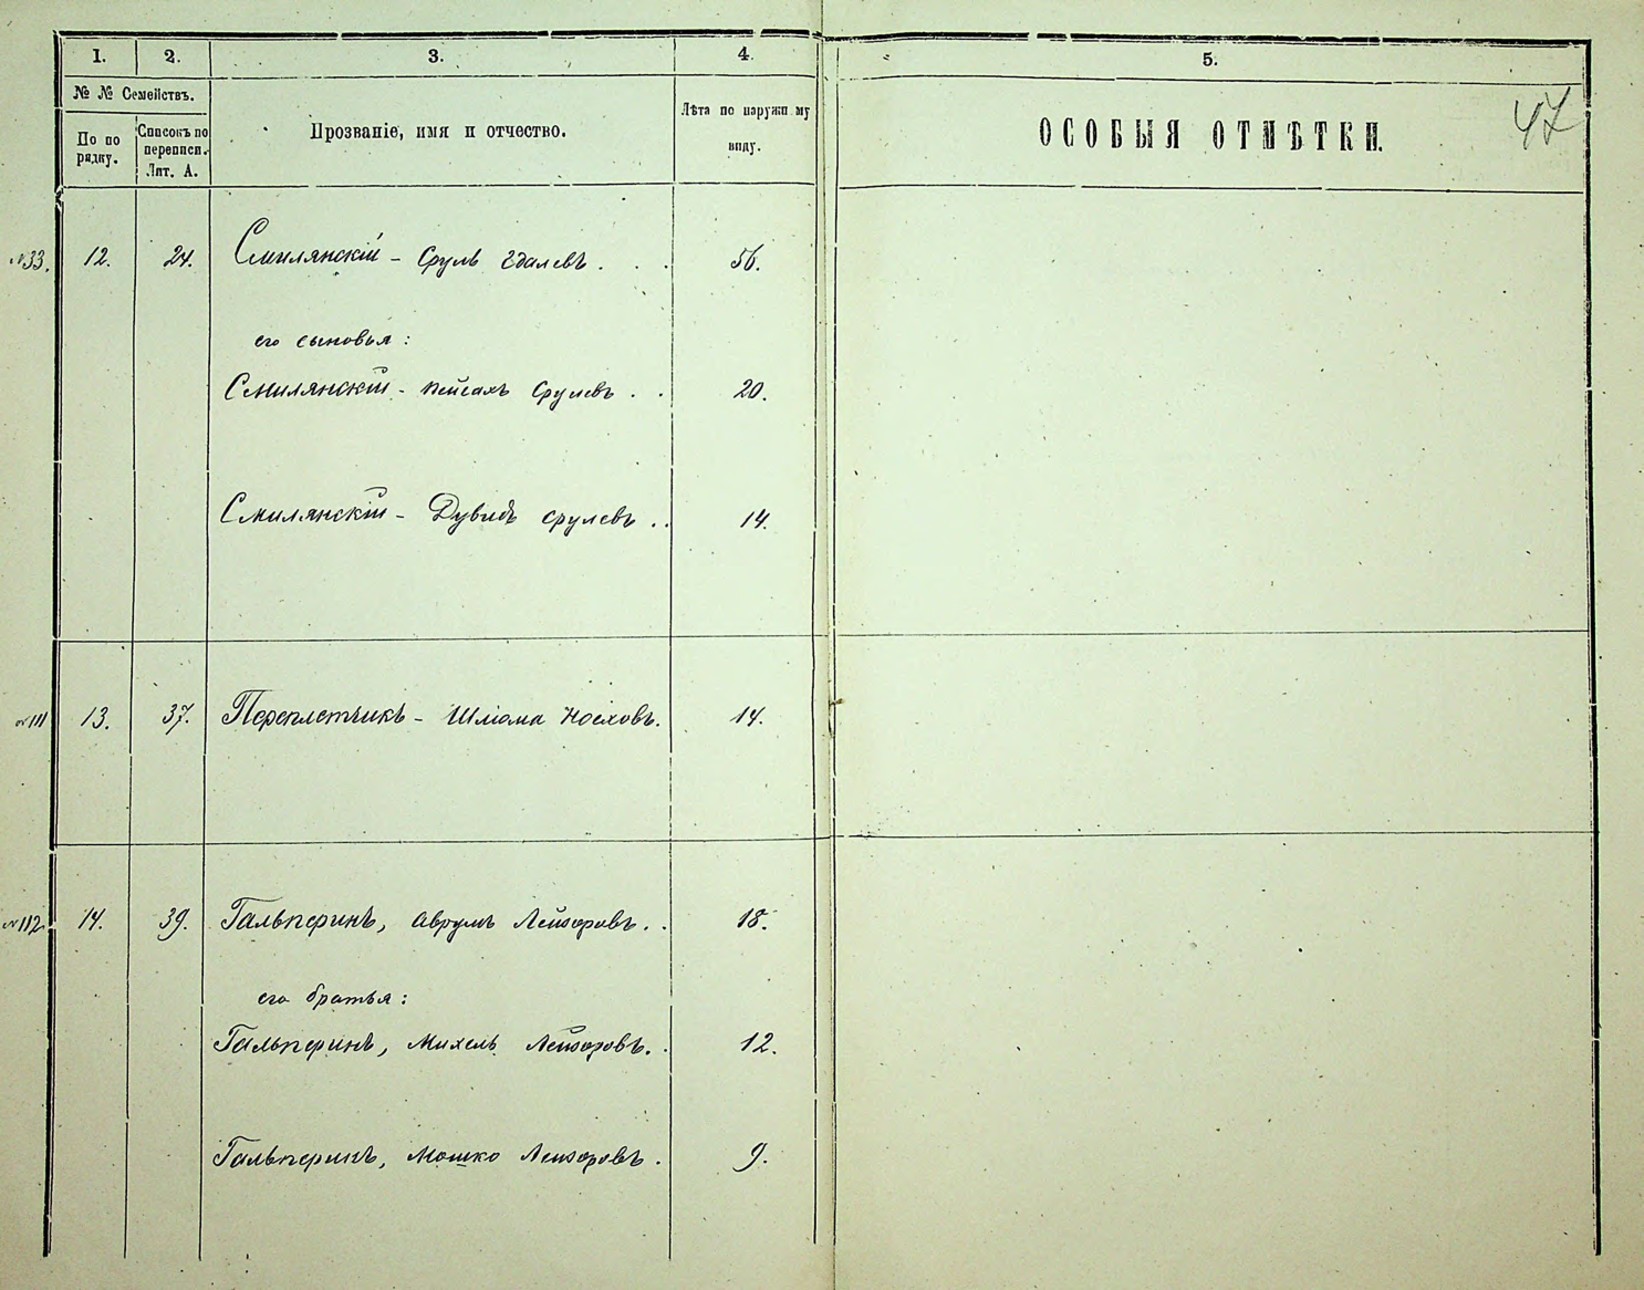 1. 2. 3. 4. 5.
№ № Семействъ.
По по рядку.
Списокъ по переписи. Лит. А.
Прозваніе, имя и отчество.
Лѣта по наружн му виду.
ОСОБЫЯ ОТМѢТКИ.
47
№33. 12. 24. Смилянскій - Сруль Гдалевъ . . . 56.
его сыновья:
Смилянскій - Пейсахъ Срулевъ . . 20.
Смилянскій - Дувидъ Срулевъ . . 14.
№111 13. 37. Переплетчикъ - Шліома Ноеховъ. 14.
№112. 14. 39. Гальперинъ, Аврумъ Лейзоровъ. . 18.
его братья:
Гальперинъ, Михель Лейзоровъ. . 12.
Гальперинъ, Мошко Лейзоровъ . 9.